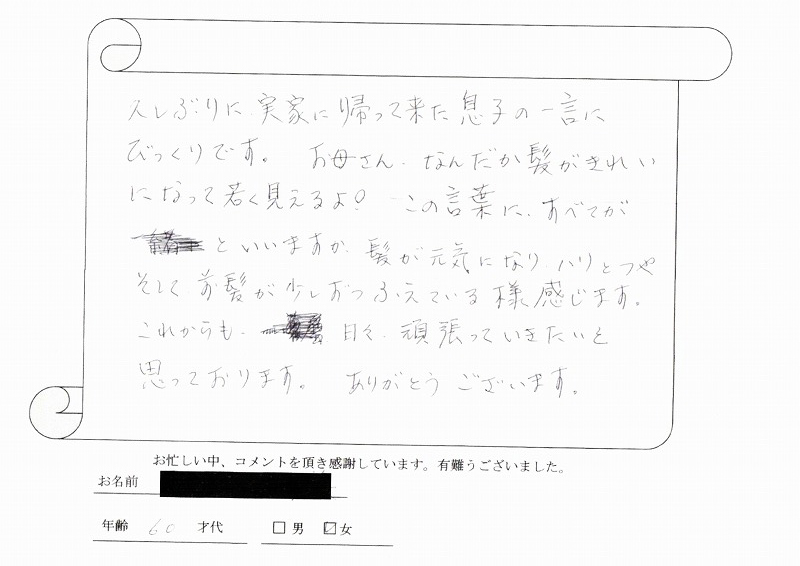 久しぶりに、実家に帰って来た息子の一言に
びっくりです。 お母さん、なんだか髪がきれい
になって若く見えるよ! この言葉に、すべてが
といいますか、髪が元気になり、ハリとつや
そして、前髪が少しずつふえている様感じます。
これからも、 日々、頑張っていきたいと
思っております。 ありがとうございます。
お忙しい中、コメントを頂き感謝しています。有難うございました。
お名前
年齢 60 才代 □ 男 ☑ 女